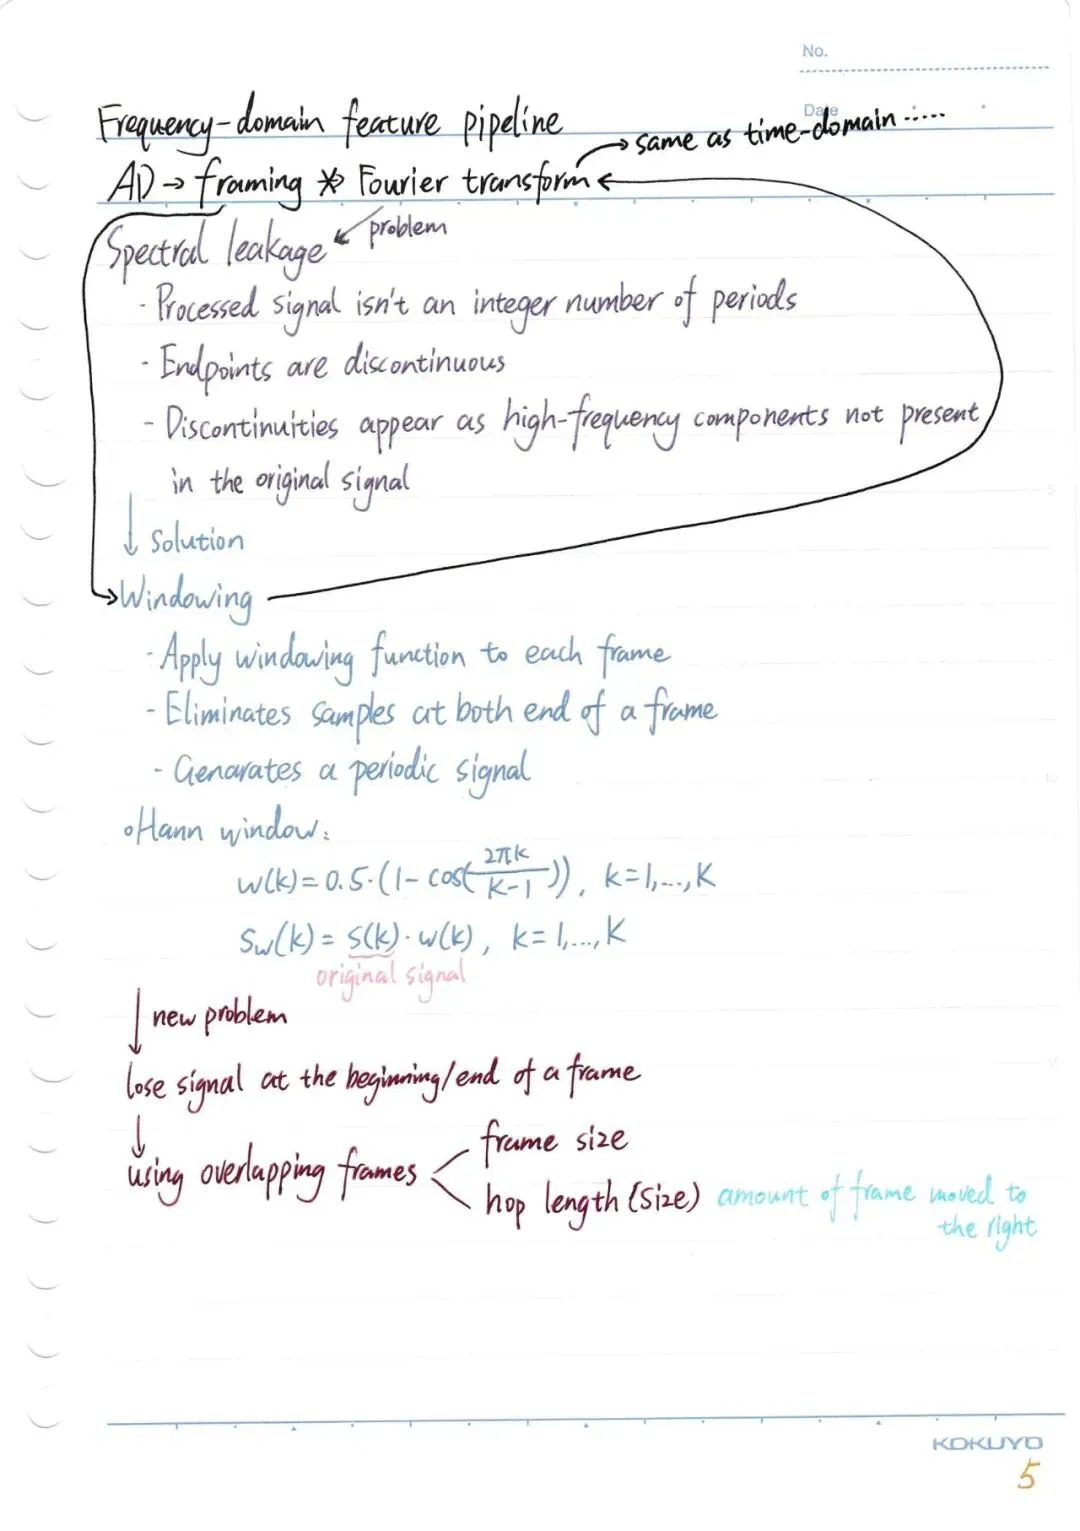 No.
Date
Frequency-domain feature pipeline
→ same as time-domain .....
AD → framing ⇏ Fourier transform ←
Spectral leakage ↙ problem
- Processed signal isn't an integer number of periods
- Endpoints are discontinuous
- Discontinuities appear as high-frequency components not present
in the original signal
↓ Solution
→ Windowing
- Apply windowing function to each frame
- Eliminates samples at both end of a frame
- Genarates a periodic signal
◦Hann window:
w(k) = 0.5·(1-cos(2πk/K-1)), k=1,...,K
Sw(k) = s(k)·w(k), k=1,...,K
original signal
↓ new problem
lose signal at the beginning/end of a frame
↓
using overlapping frames < frame size
hop length (size) amount of frame moved to
the right
KOKUYO
5